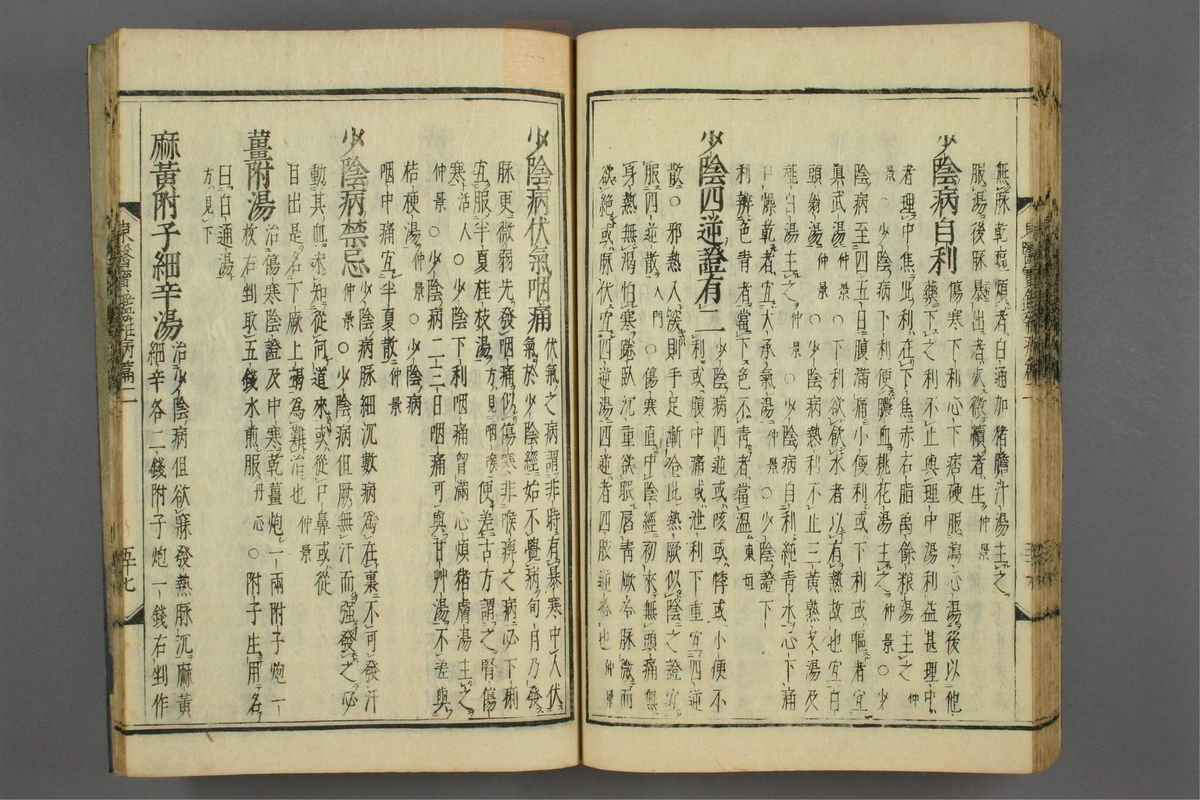 無脉乾嘔煩者白通加猪膽汁湯主之
服湯後脉暴出者死微續者生仲景
少陰病自利
傷寒下利心下痞硬服瀉心湯後以他
藥下之利不止與理中湯利益甚理中
者理中焦此利在下焦赤石脂禹餘粮湯主之仲
景○少陰病下利便膿血桃花湯主之仲景○少
陰病至四五日腹滿痛小便利或下利或嘔者宜
眞武湯仲景○下利欲飮水者以有熱故也宜白
頭翁湯仲景○少陰病熱利不止三黃熟艾湯及
薤白湯主之仲景○少陰病自利純青水心下痛
口燥乾者宜大承氣湯仲景○少陰證下
利辨色青者當下色不青者當溫東垣
少陰四逆證有二
少陰病四逆或咳或悸或小便不
利或腹中痛或泄利下重宜四逆
散○邪熱入深則手足漸冷此熱厥似陰之證宜
服四逆散入門○傷寒直中陰經初來無頭痛無
身熱無渴怕寒踡臥沉重欲眠唇青厥冷脉微而
欲絶或脉伏宜四逆湯四逆者四肢逆冷也仲景
少陰病伏氣咽痛
伏氣之病謂非時有暴寒中人伏
氣於少陰經始不覺病旬月乃發
脉更微弱先發咽痛似傷寒非喉痺之病必下利
宜服半夏桂枝湯方見咽喉便差古方謂之腎傷
寒活人○少陰下利咽痛胷滿心煩猪膚湯主之
仲景○少陰病二三日咽痛可與甘艸湯不差與
桔梗湯仲景○少陰病
咽中痛宜半夏散仲景
少陰病禁忌
少陰病脉細沉數病爲在裏不可發汗
仲景○少陰病但厥無汗而強發之必
動其血未知從何道來或從口鼻或從
目出是名下厥上竭爲難治也仲景
薑附湯
治傷寒陰證及中寒乾薑炮一兩附子炮一
枚右剉取五錢水煎服丹心○附子生用名
曰白通湯
方見下
麻黃附子細辛湯
治少陰病但欲寐發熱脉沉麻黃
細辛各二錢附子炮一錢右剉作
東醫寶鑑雜病篇二
五七